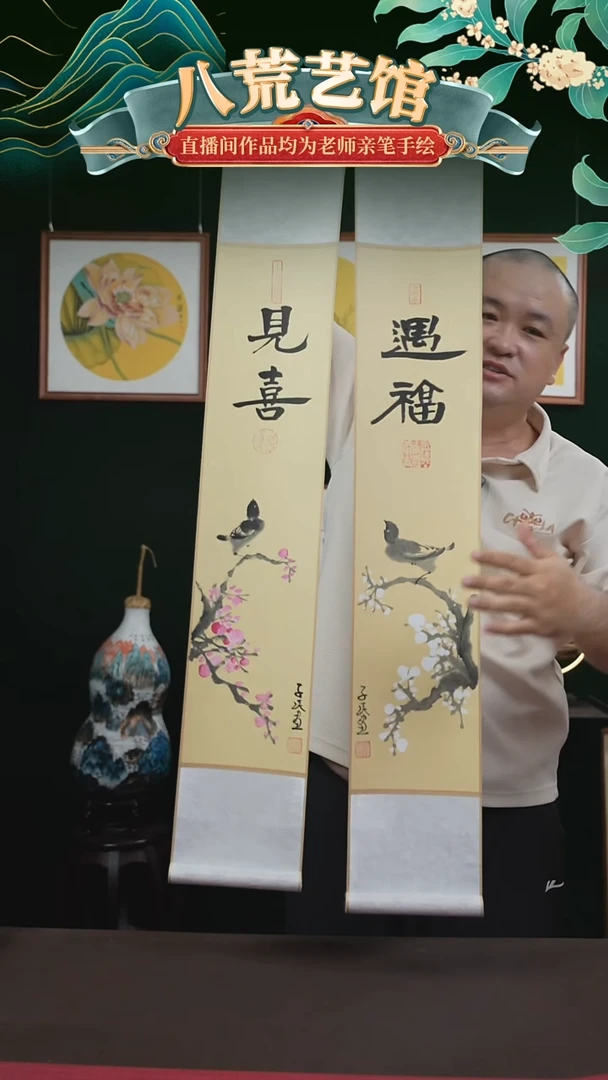 八荒艺馆
直播间作品均为老师亲笔手绘
見喜
遇福